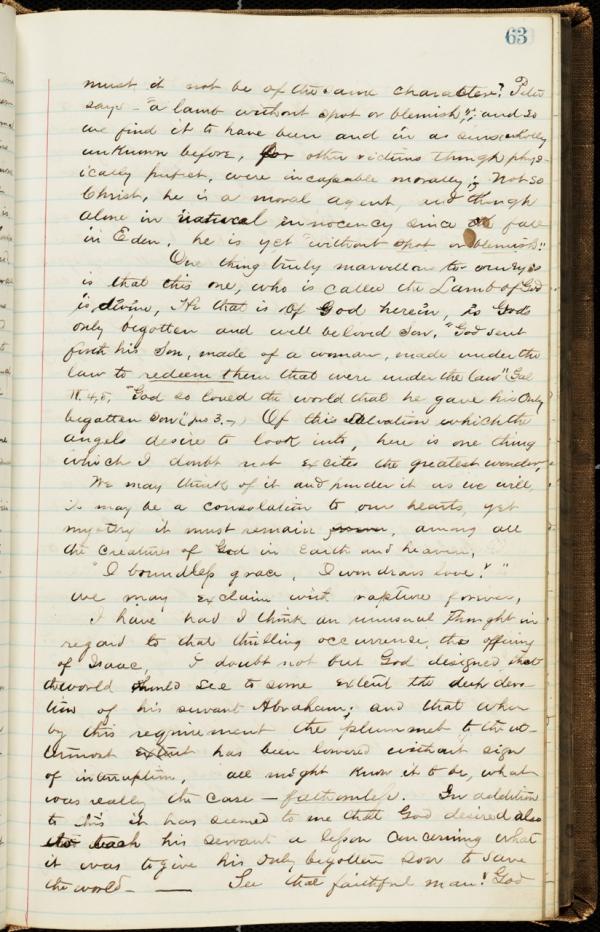 63
must it not be of the same character? Peter
says - "a lamb without spot or blemish"; and so
we find it to have been and in a sense wholly
unknown before, for other victims though phys-
ically perfect, were incapable morally; Not so
Christ, he is a moral agent, and though
alone in natural innocency since the fall
in Eden, he is yet "without spot or blemish".
One thing truly marvellous to our eyes
is that this one, who is called the Lamb of God
is divine, He that is of God herein, is God's
only begotten and well beloved Son, "God sent
forth his Son, made of a woman, made under the
law to redeem them that were under the law" Gal
4,5, "God so loved the world that he gave his only
begotten Son" 3. Of this salvation which the
angels desire to look into, here is one thing
which I doubt not excites the greatest wonder,
We may think of it and ponder it as we will
it may be a consolation to our hearts, yet
mystery it must remain among all
the creatures of God in Earth and heaven,
"O boundless grace, O wondrous love!"
we may exclaim with rapture forever,
I have had I think an unusual thought in
regard to that thrilling occurrence, the offering
of Isaac, I doubt not but God designed that
the world should see to some extent the deep devo-
tion of his servant Abraham; and that when
by this requirement the plummet to the ut-
termost extent has been lowered without sign
of interruption, all might know it to be, what
was really the case - fathomless. In addition
to this it has seemed to me that God desired also
to teach his servant a lesson concerning what
it was to give his only begotten son to save
the world - — See that faithful man! God